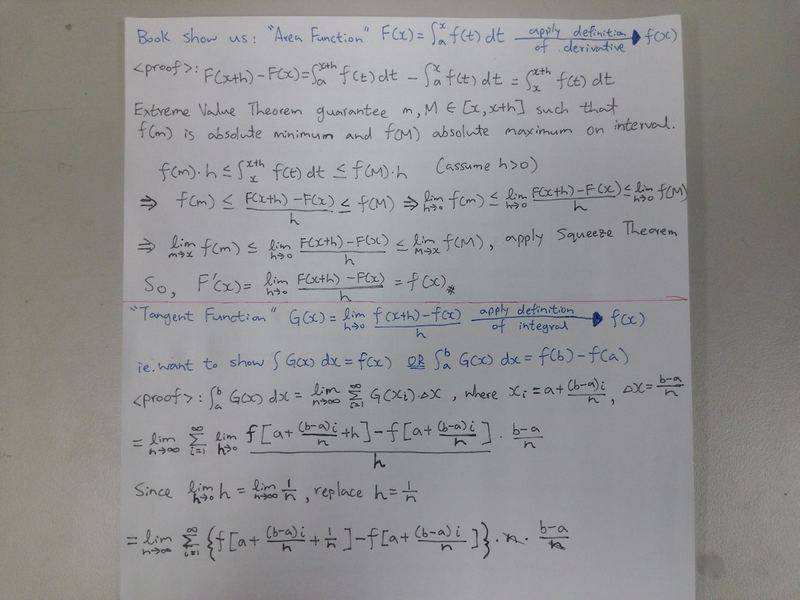 Book show us: "Area Function" F(x)=∫ₐˣ f(t) dt apply definition of derivative → f(x)
<proof>: F(x+h)-F(x)=∫ₐˣ⁺ʰ f(t) dt - ∫ₐˣ f(t) dt = ∫ₓˣ⁺ʰ f(t) dt
Extreme Value Theorem guarantee m, M ∈ [x, x+h] such that
f(m) is absolute minimum and f(M) absolute maximum on interval.
f(m)·h ≤ ∫ₓˣ⁺ʰ f(t) dt ≤ f(M)·h (assume h>0)
⇒ f(m) ≤ (F(x+h)-F(x))/h ≤ f(M) ⇒ lim_{h→0} f(m) ≤ lim_{h→0} (F(x+h)-F(x))/h ≤ lim_{h→0} f(M)
⇒ lim_{m→x} f(m) ≤ lim_{h→0} (F(x+h)-F(x))/h ≤ lim_{M→x} f(M), apply Squeeze Theorem
So, F'(x)= lim_{h→0} (F(x+h)-F(x))/h = f(x) ※
"Tangent Function" G(x)= lim_{h→0} (f(x+h)-f(x))/h apply definition of integral → f(x)
ie. want to show ∫ G(x) dx = f(x) OR ∫ₐᵇ G(x) dx = f(b)-f(a)
<proof>: ∫ₐᵇ G(x) dx = lim_{n→∞} ∑_{i=1}^{∞} G(xᵢ)·Δx, where xᵢ = a+(b-a)i/n, Δx= (b-a)/n
= lim_{n→∞} ∑_{i=1}^{∞} lim_{h→0} (f[a+(b-a)i/n+h]-f[a+(b-a)i/n])/h · (b-a)/n
Since lim_{h→0} h = lim_{n→∞} 1/n, replace h = 1/n
= lim_{n→∞} ∑_{i=1}^{∞} {f[a+(b-a)i/n+1/n]-f[a+(b-a)i/n]}·n·(b-a)/n